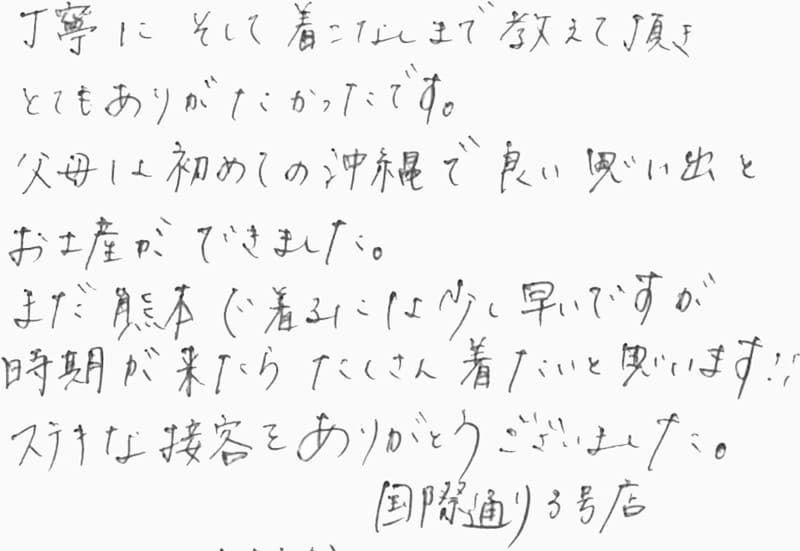 丁寧に そして 着こなしまで 教えて頂き
とてもありがたかったです。
父母は初めての沖縄で 良い思い出と
お土産が できました。
まだ 熊本で着るには少し早いですが
時期が来たら たくさん 着たいと思います!!
ステキな接客をありがとうございました。
国際通り3号店